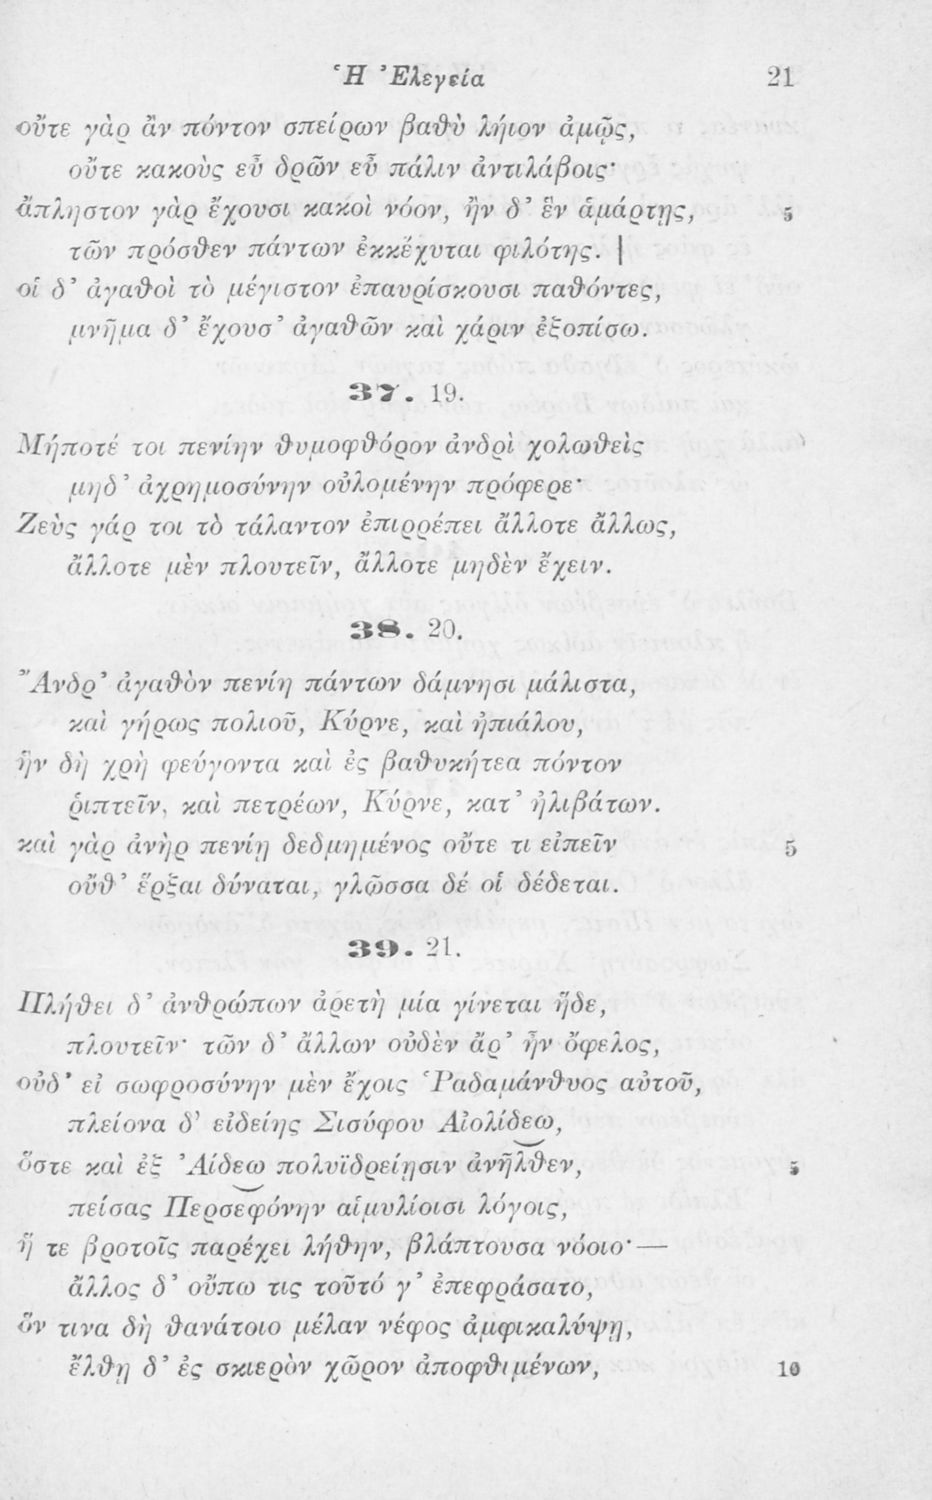 Ἡ Ἐλεγεία 21
οὔτε γὰρ ἂν πόντον σπείρων βαθὺ λήιον ἀμῷς,
οὔτε κακοὺς εὖ δρῶν εὖ πάλιν ἀντιλάβοις·
ἄπληστον γὰρ ἔχουσι κακοὶ νόον, ἢν δ’ ἓν ἁμάρτῃς, 5
τῶν πρόσθεν πάντων ἐκκέχυται φιλότης. |
οἱ δ’ ἀγαθοὶ τὸ μέγιστον ἐπαυρίσκουσι παθόντες,
μνῆμα δ’ ἔχουσ’ ἀγαθῶν καὶ χάριν ἐξοπίσω.
37. 19.
Μήποτέ τοι πενίην θυμοφθόρον ἀνδρὶ χολωθεὶς
μηδ’ ἀχρημοσύνην οὐλομένην πρόφερε·
Ζεὺς γάρ τοι τὸ τάλαντον ἐπιρρέπει ἄλλοτε ἄλλως,
ἄλλοτε μὲν πλουτεῖν, ἄλλοτε μηδὲν ἔχειν.
38. 20.
Ἄνδρ’ ἀγαθὸν πενίη πάντων δάμνησι μάλιστα,
καὶ γήρως πολιοῦ, Κύρνε, καὶ ἠπιάλου,
ἣν δὴ χρὴ φεύγοντα καὶ ἐς βαθυκήτεα πόντον
ῥιπτεῖν, καὶ πετρέων, Κύρνε, κατ’ ἠλιβάτων.
καὶ γὰρ ἀνὴρ πενίῃ δεδμημένος οὔτε τι εἰπεῖν 5
οὔθ’ ἕρξαι δύναται, γλῶσσα δέ οἱ δέδεται.
39. 21.
Πλήθει δ’ ἀνθρώπων ἀρετὴ μία γίνεται ἥδε,
πλουτεῖν· τῶν δ’ ἄλλων οὐδὲν ἄρ’ ἦν ὄφελος,
οὐδ’ εἰ σωφροσύνην μὲν ἔχοις Ῥαδαμάνθυος αὐτοῦ,
πλείονα δ’ εἰδείης Σισύφου Αἰολίδεω,
ὅστε καὶ ἐξ Ἀίδεω πολυϊδρείῃσιν ἀνῆλθεν, 5
πείσας Περσεφόνην αἱμυλίοισι λόγοις,
ἥ τε βροτοῖς παρέχει λήθην, βλάπτουσα νόοιο· —
ἄλλος δ’ οὔπω τις τοῦτό γ’ ἐπεφράσατο,
ὅν τινα δὴ θανάτοιο μέλαν νέφος ἀμφικαλύψῃ,
ἔλθῃ δ’ ἐς σκιερὸν χῶρον ἀποφθιμένων, 10